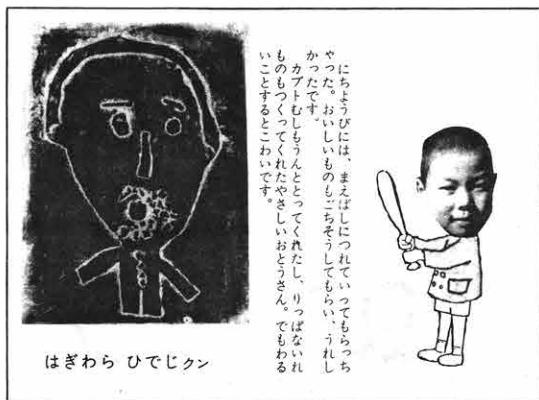 にちようびには、まえばしにつれていってもらっち
ゃった。おいしいものもごちそうしてもらい、うれし
かったです。
カブトむしもうんととってくれたし、りっぱないれ
ものもつくってくれたやさしいおとうさん。でもわる
いことするとこわいです。
はぎわら ひでじクン